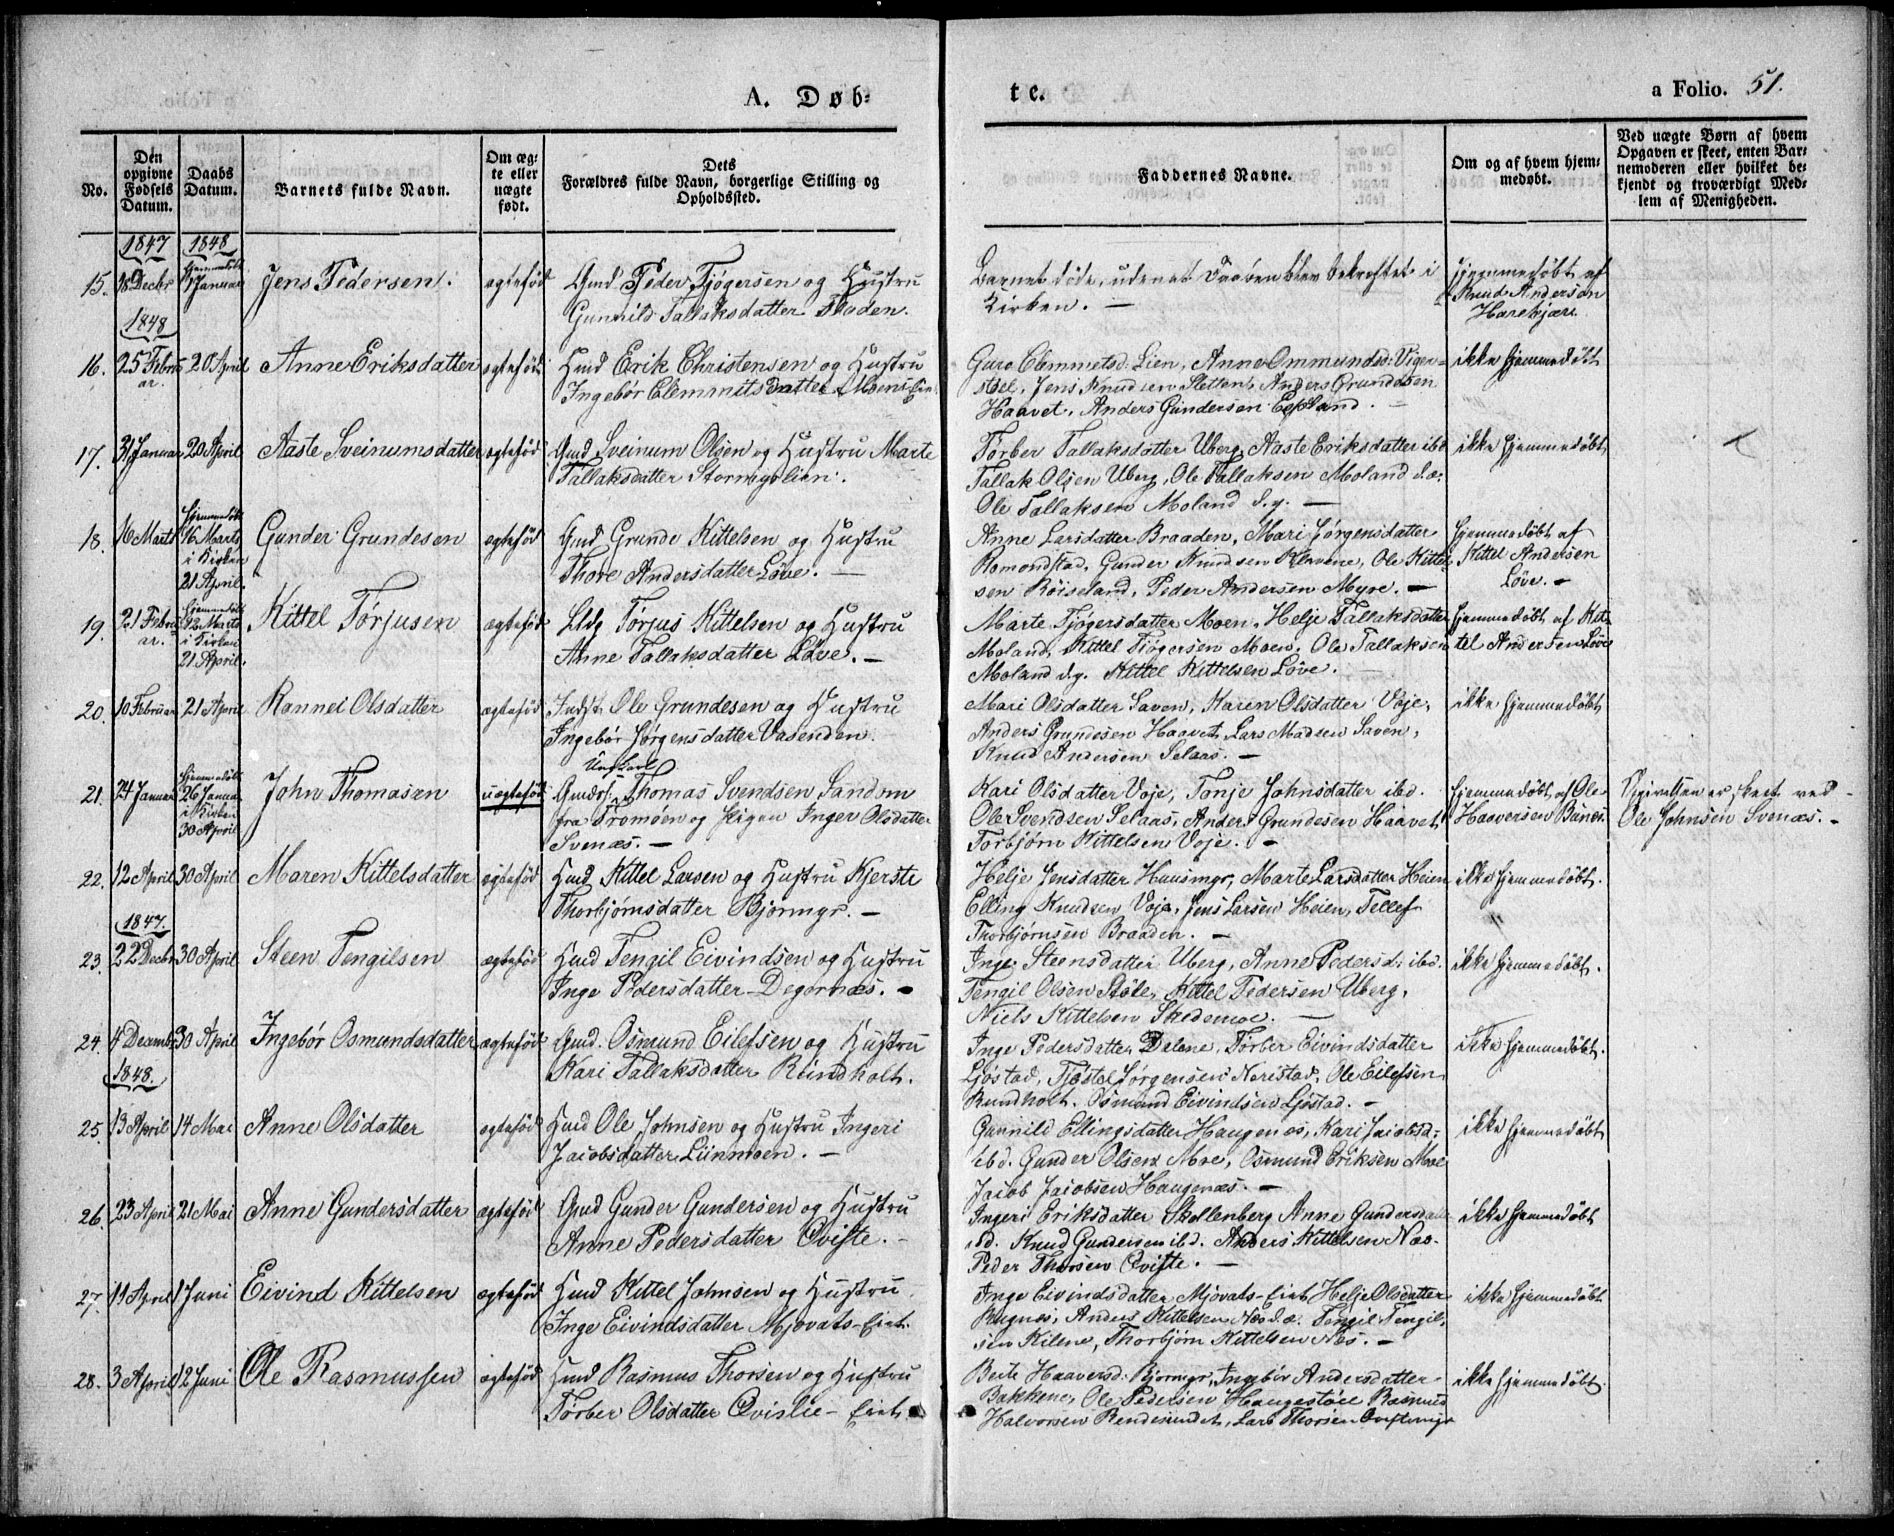 A. Døb-
te.
a Folio. 51.
No.
Den
opgivne
Fødsels
Datum.
Daabs
Datum.
Barnets fulde Navn.
Om æg-
te eller
uægte
født.
Dets
Forældres fulde Navn, borgerlige Stilling og
Opholdssted.
Faddernes Navne.
Om og af hvem hjem-
medøbt.
Ved uægte Børn af hvem
Opgaven er skeet, enten Bar-
nemoderen eller hvilket be-
kjendt og troværdigt Med-
lem af Menigheden.
1847
1848
15. 18 Decbr Januar Jens Pedersen. ægtefød Gmd Peder Tjøgersen og Hustru
Gunnild Tallaksdatter
Barnet døde, udenat Daaben blev bekræftet i
Kirken. —
hjemmedøbt af
Knud Andersen
Harekjær
1848
16. 25 Febru-
ar. 20 April Anne Eriksdatter ægtefød Hmd Erik Christensen og Hustru
Ingebør Clemmitsdatter Moen Eiet
Guro Clemmetsd. Lien, Anne Ommundsd. Viger-
støel, Jens Knudsen Sletten, Anders Grundesen
Haavet, Anders Gundersen Espeland. —
ikke hjemmedøbt
17. 31 Januar 20 April Aaste Sveinumsdatter ægtefød Gmd Sveinum Olsen og Hustru Marte
Tallaksdatter Stormyrlien.
Tørber Tallaksdatter Uberg, Aaste Eriksdatter ibd
Tallak Olsen Uberg, Ole Tallaksen Moland d.æ.
Ole Tallaksen Moland d.y. —
ikke hjemmedøbt
18. 16 Marts hjemmedøbt
16 Marts
i Kirken
21 April. Gunder Grundesen ægtefød Gmd Grunde Kittelsen og Hustru
Thore Andersdatter Løve. —
Anne Larsdatter Braaden, Mari Jørgensdatter
Romondstad, Gunder Knudsen Klevene, Ole Kittel-
sen Røiseland, Peder Andersen Myre. —
hjemmedøbt af
Kittel Andersen
Løve. —
19. 21 Febru-
ar. hjemmedøbt
12 Marts
i Kirken
21 April. Kittel Tørjusen ægtefød Lldg Tørjus Kittelsen og Hustru
Anne Tallaksdatter Løve. —
Marte Tjøgersdatter Moen, Helje Tallaksdatter
Moland, Kittel Tjøgersen Moen, Ole Tallaksen
Moland d.y. Kittel Kittelsen Løve. —
hjemmedøbt af Kit-
tel Andersen Løve
20. 10 Februar 21 April Rannei Olsdatter ægtefød Indst. Ole Grundesen og Hustru
Ingebør Jørgensdatter Vasenden.
Mari Olsdatter Saven, Karen Olsdatter Voje,
Anders Grundesen Haavet, Lars Madsen Saven,
Knud Andersen Selaas. —
ikke hjemmedøbt
21. 24 Januar hjemmedøbt
26 Januar
i Kirken
30 April John Thomasen uægtefød Ungkarl
Thomas Svendsen Sandum
fra Tromøen og Pigen Inger Olsdatter
Svenæs. —
Kari Olsdatter Voje, Tonje Johnsdatter ibd.
Ole Svendsen Selaas, Anders Grundesen Haavet
Torbjørn Kittelsen Voje. —
hjemmedøbt af Ole
Haaversen Bünes.
Opgivelsen er skeet ved
Ole Johnsen Svenæs. —
22. 12 April 30 April Maren Kittelsdatter ægtefød Hmd Kittel Larsen og Hustru Kjersti
Thorbjørnsdatter Bjormyr. —
Helje Jensdatter Hausmyr, Marte Larsdatter Heien
Elling Knudsen Voje, Jens Larsen Heien, Tellef
Thorbjørnsen Braaden. —
ikke hjemmedøbt.
1847.
23. 22 Decbr 30 April Steen Tengilsen ægtefød Hmd Tengil Eivindsen og Hustru
Inge Pedersdatter Degernæs. —
Inge Steensdatter Uberg, Anne Pedersd. ibd.
Tengil Olsen Støle, Kittel Pedersen Uberg,
Niels Kittelsen Skedemoe. —
ikke hjemmedøbt.
24. 4 Decembr 30 April Ingebør Osmundsdatter ægtefød Gmd. Osmund Eilefsen og Hustru
Kari Tallaksdatter Ründholt.
Inge Pedersdatter Dalene, Tørber Eivindsdatter
Ljøstad, Tjøstel Jørgensen Nerestad, Ole Eilefsen
Rundholt. Osmund Eivindsen Ljøstad. —
ikke hjemmedøbt.
1848.
25. 13 April 14 Mai Anne Olsdatter ægtefød Hmd Ole Johnsen og Hustru Ingeri
Jacobsdatter Liinmoen. —
Gunnild Ellingsdatter Haugenæs, Kari Jacobsd.
ibd. Gunder Olsen Moe, Osmund Eriksen Moe
Jacob Jacobsen Haugenæs. —
ikke hjemmedøbt
26. 23 April 21 Mai Anne Gundersdatter ægtefød Gmd Gunder Gundersen og Hustru
Anne Pedersdatter Qviste. —
Ingeri Eriksdatter Skollenberg Anne Gundersdatter
ibd. Knud Gundersen ibd. Anders Kittelsen Næs.
Peder Thorsen Qviste. —
ikke hjemmedøbt
27. 19 April 1 Juni Eivind Kittelsen ægtefød Hmd Kittel Johnsen og Hustru
Inge Eivindsdatter Mjovats-Eiet.
Inge Eivindsdatter Mjovats-Eiet Helje Olsdatter
Rugnæs, Anders Kittelsen Næs d.æ. Tengil Tengil-
sen Kilene, Thorbjørn Kittelsen Næs. —
ikke hjemmedøbt
28. 3 April 12 Juni Ole Rasmussen ægtefød Hmd Rasmus Thorsen og Hustru
Tørber Olsdatter Qvislie-Eiet.
Berte Haaversd. Bjormyr, Ingebør Andersdatter
Bakkene, Ole Pedersen Haugestøel Rasmus
Halvorsen Rendesundet, Lars Thorsen Qvistemyr
ikke hjemmedøbt.